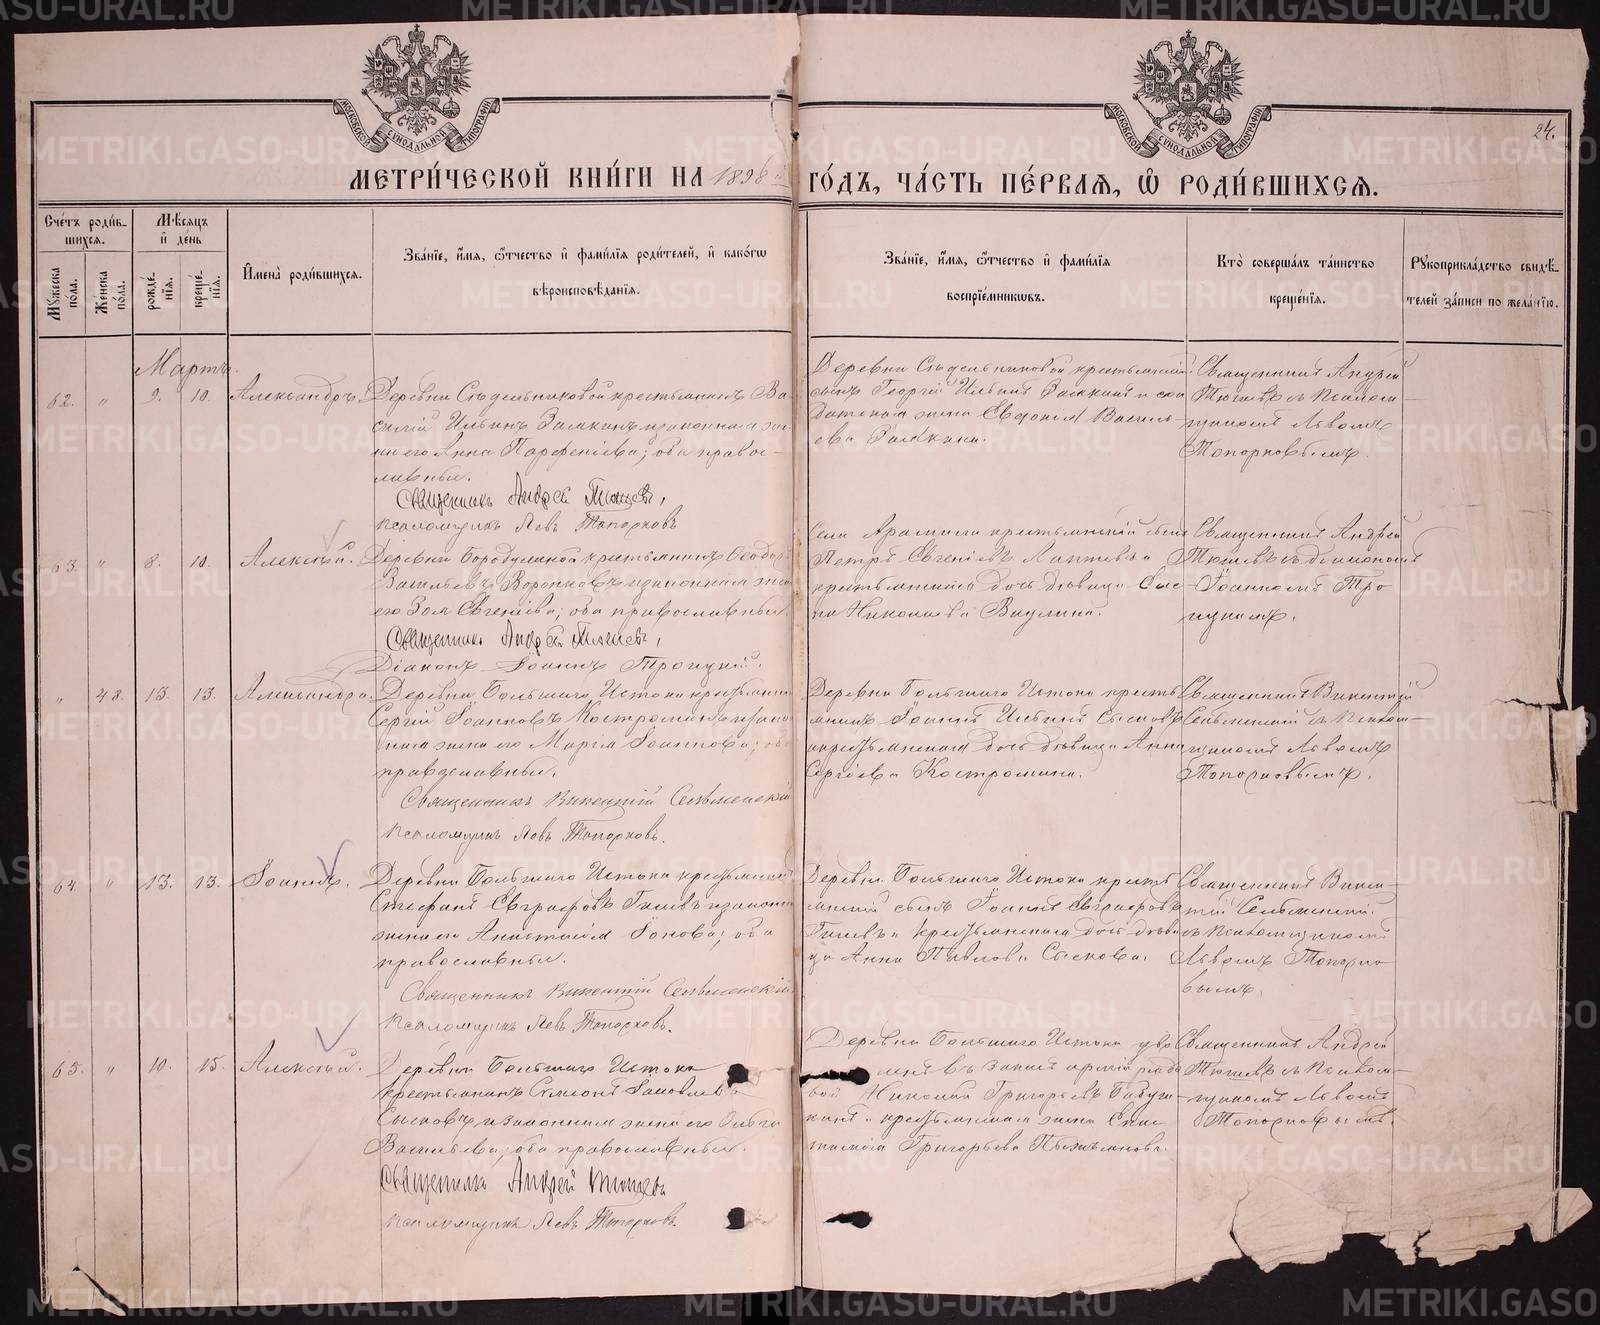 24.
МЕТРИ́ЧЕСКОЙ КНИ́ГИ НА 1898 й ГО́ДЪ, ЧА́СТЬ ПЕ́РВАЯ, Ѽ РОДИ́ВШИХСЯ.
МОСКОВСКОЙ СУНОДАЛЬНОЙ ТИПОГРАФІИ
МОСКОВСКОЙ СУНОДАЛЬНОЙ ТИПОГРАФІИ
Сче́тъ роди́вшихся.
Мꙋ́жеска по́ла.
Же́нска по́ла.
Мѣ́сяцъ и҆ де́нь
рожде́нїя.
креще́нїя.
И҆мена̀ роди́вшихся.
Зва́нїе, и҆́мя, ѻ҆́тчество и҆ фами́лїя роди́телей, и҆ како́гѡ
вѣроисповѣ́данїя.
Зва́нїе, и҆́мя, ѻ҆́тчество и҆ фами́лїя
воспрїе́мникѡвъ.
Кто̀ соверша́лъ та́инство
креще́нїя.
Рꙋкоприкла́дство свидѣ́-
телей за́писи по жела́нїю.
Мартъ.
62. " 9. 10. Александръ.
Деревни Сѣдельниковой крестьянинъ Ва-
силій Ильинъ и законная же-
на его Анна Парфеніева; оба правос-
лавные.
Священникъ Андрей
Псаломщикъ Левъ Топорковъ
Деревни Сѣдельниковой крестьянскій
сынъ Георгій Ильинъ и сол
датская жена Евдокія Василь-
ева
Священникъ Андрей
съ Псалом
щикомъ Львомъ
Топорковымъ.
63. " 8. 10. Алексѣй.
Деревни Бородулиной крестьянинъ Ѳеодоръ
Васильевъ Воронковъ и законная жена
его Зоя Евгеніева; оба православные.
Священникъ Андрей
Діаконъ Іоаннъ Троицкій.
Села Арамили крестьянскій сынъ
Петръ Евгеніевъ Лаптевъ и
крестьянская дочь дѣвица
Николаева
Священникъ Андрей
съ діакономъ
Іоанномъ Тро
ицкимъ.
" 48. 13. 13. Александра.
Деревни Большаго Истока крестьянинъ
Сергій Іоанновъ Костроминъ и закон
ная жена его Марія Іоаннова; оба
православные.
Священникъ Викентій Сельменскій
Псаломщикъ Левъ Топорковъ.
Деревни Большаго Истока кресть
янинъ Іоаннъ Ильинъ Сысковъ
и крестьянская дочь дѣвица Анна
Сергіева Костромина.
Священникъ Викентій
Сельменскій съ Псалом-
щикомъ Львомъ
Топорковымъ.
64. " 13. 13. Іоаннъ.
Деревни Большаго Истока крестьянинъ
Стефанъ Евграфовъ Гилевъ и законная
жена его Анастасія Іонова; оба
православные.
Священникъ Викентій Сельменскій
Псаломщикъ Левъ Топорковъ.
Деревни Большаго Истока кресть
янскій сынъ Іоаннъ Евграфовъ
Гилевъ и крестьянская дочь дѣви
ца Анна Павлова Сыскова.
Священникъ Викен-
тій Сельменскій
съ Псаломщикомъ
Львомъ Топорко
вымъ.
65. " 10. 15. Алексѣй.
Деревни Большаго Истока
крестьянинъ Симеонъ Іаковлевъ
Сысковъ и законная жена его Ольга
Васильева; оба православные.
Священникъ Андрей
Псаломщикъ Левъ Топорковъ.
Деревни Большаго Истока уво
въ запасъ арміи рядо
вой Николай Григорьевъ
и крестьянская жена
Григорьева
Священникъ Андрей
съ Псалом-
щикомъ Львомъ
Топорковымъ.
METRIKI.GASO-URAL.RU